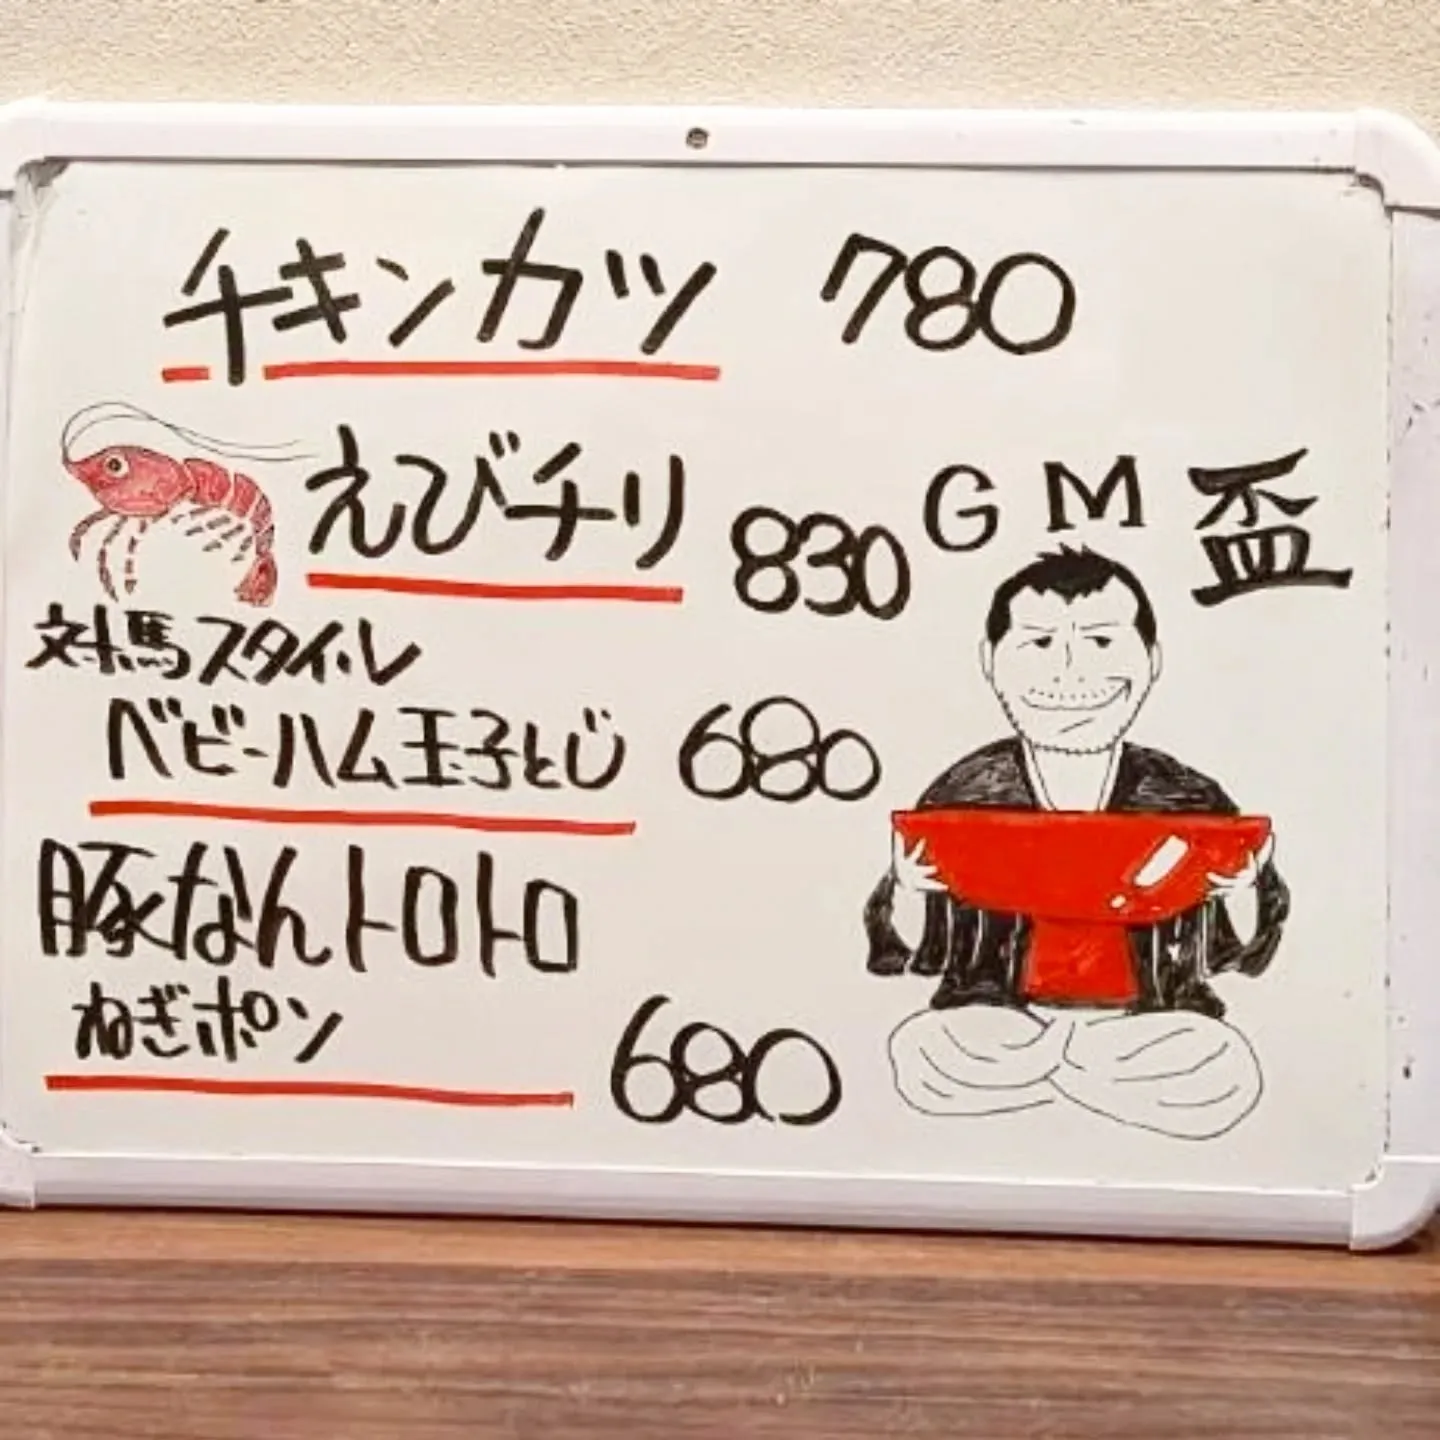 チキンカツ 780
えびチリ 830
GM盃
対馬スタイル
ベビーハム玉子とじ 680
豚なんトロトロ
ねぎポン 680